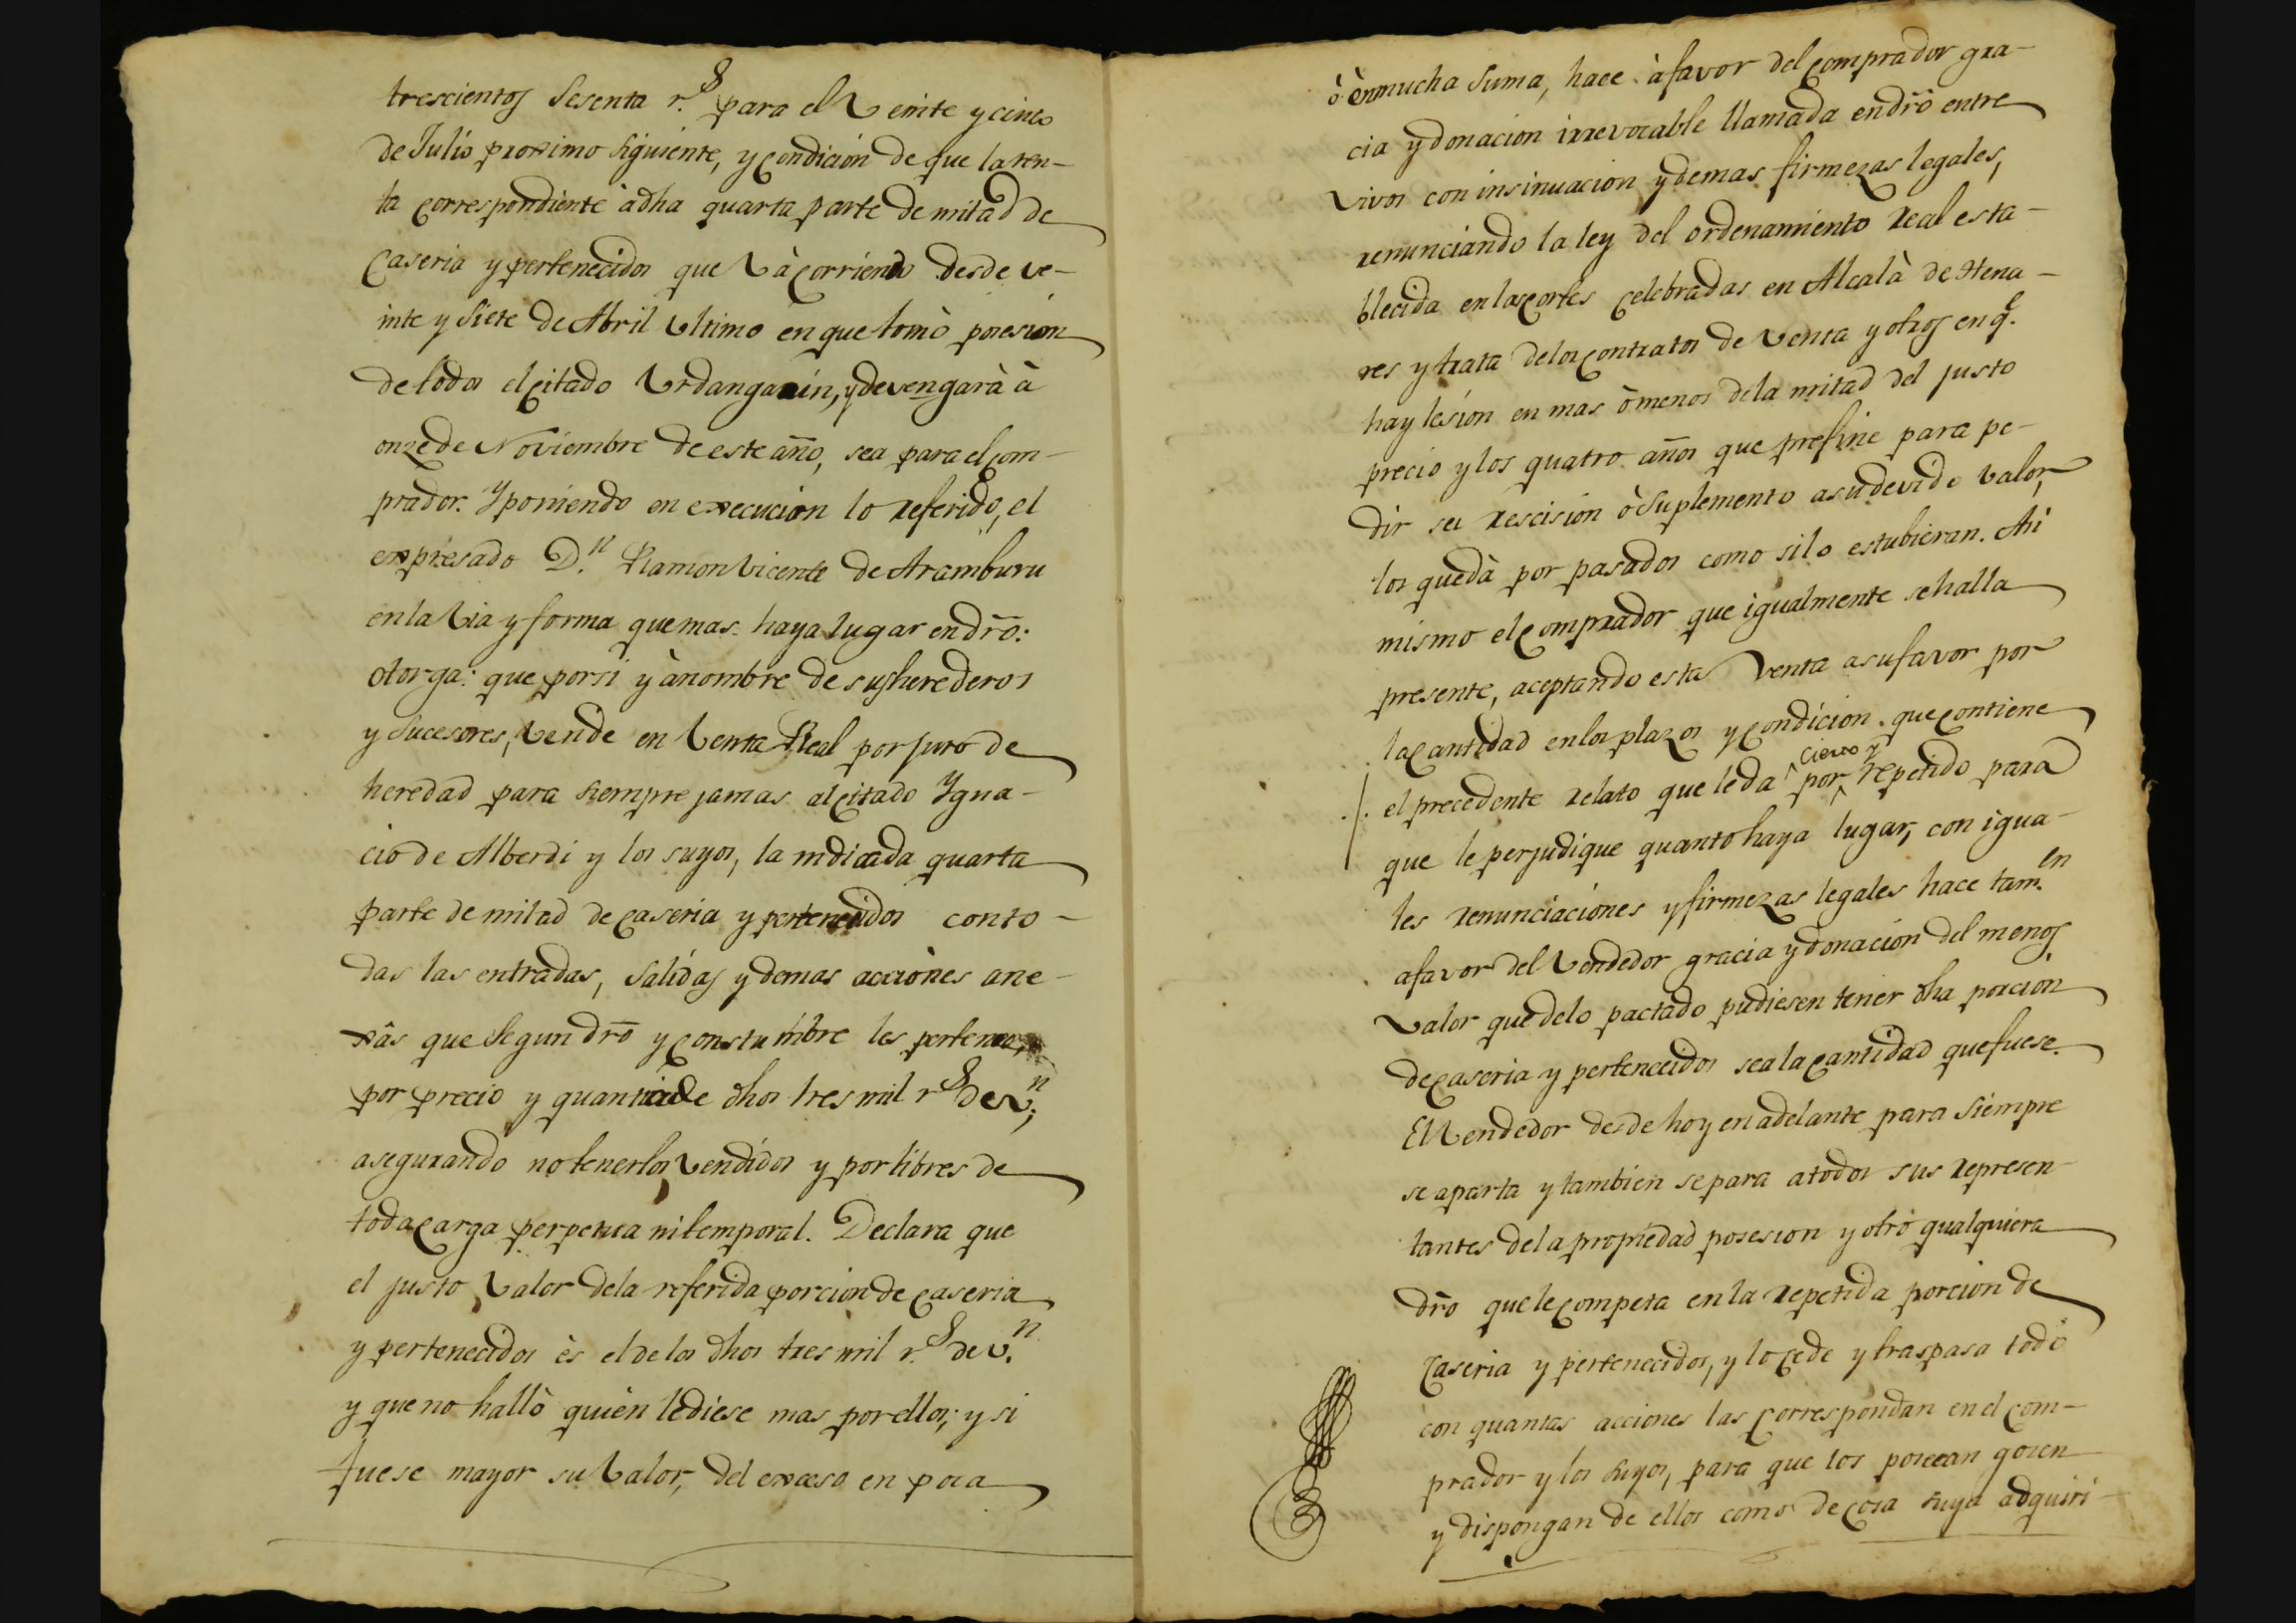 trescientos Sesenta r.s para el Veinte y cinco
de Julio proximo siguiente, y condicion de que la ren-
ta correspondiente à dha quarta parte de mitad de
Caseria y pertenecidos que và corriendo desde ve-
inte y siete de Abril ultimo en que tomò posesion
de todos el citado Urdangarin, y devengarà à
onze de Noviembre de este año, sea para el com-
prador. Y poniendo en execucion lo referido, el
expresado D.n Ramon Vicente de Aramburu
en la via y forma que mas haya lugar en dro:
otorga: que por si y à nombre de sus herederos
y sucesores, vende en Venta Real por juro de
heredad para siempre jamas al citado Ygna-
cio de Alberdi y los suyos, la indicada quarta
parte de mitad de caseria y pertenecidos con to-
das las entradas, salidas y demas acciònes ane-
xâs que segun dro y constumbre les pertenece,
por precio y quantia de dhos tres mil r.s de v.n;
asegurando no tenerlos vendidos y por libres de
toda carga perpetua ni temporal. Declara que
el justo valor dela referida porcion de caseria
y pertenecidos ès el de los dhos tres mil r.s de v.n
y que no hallò quien le diese mas por ellos; y si
fuese mayor su valor, del exceso en poca
ò èn mucha suma, hace à favor del comprador gra-
cia y donacion irrevocable llamada en dro entre
vivos con insinuacion y demas firmezas legales,
renunciando la ley del ordenamiento real esta-
blecida en las cortes celebradas en Alcalà de Hena-
res y trata de los contratos de venta y otros en q.e
hay lesion en mas ò menos de la mitad del justo
precio y los quatro años que prefine para pe-
dir su rescision ò suplemento a su devido valor,
los quedà por pasados como si lo estubieran. Asi
mismo el comprador que igualmente se halla
presente, aceptando esta venta a su favor por
la cantidad en los plazos y condicion que contiene
el precedente relato que le da por cierto y repetido para
que le perjudique quanto haya lugar, con igua-
les renunciaciones y firmezas legales hace tam.en
a favor del vendedor gracia y donacion del menos
valor que de lo pactado pudiesen tener dha porcion
de caseria y pertenecidos sea la cantidad que fuese.
El Vendedor desde hoy en adelante para siempre
se aparta y tambien separa a todos sus represen-
tantes de la propiedad posesion y otro qualquiera
dro que le competa en la repetida porcion de
Caseria y pertenecidos, y lo cede y traspasa todo
con quantas acciones las correspondan en el com-
prador y los suyos, para que los posean gosen
y dispongan de ellos como de cosa suya adquiri-